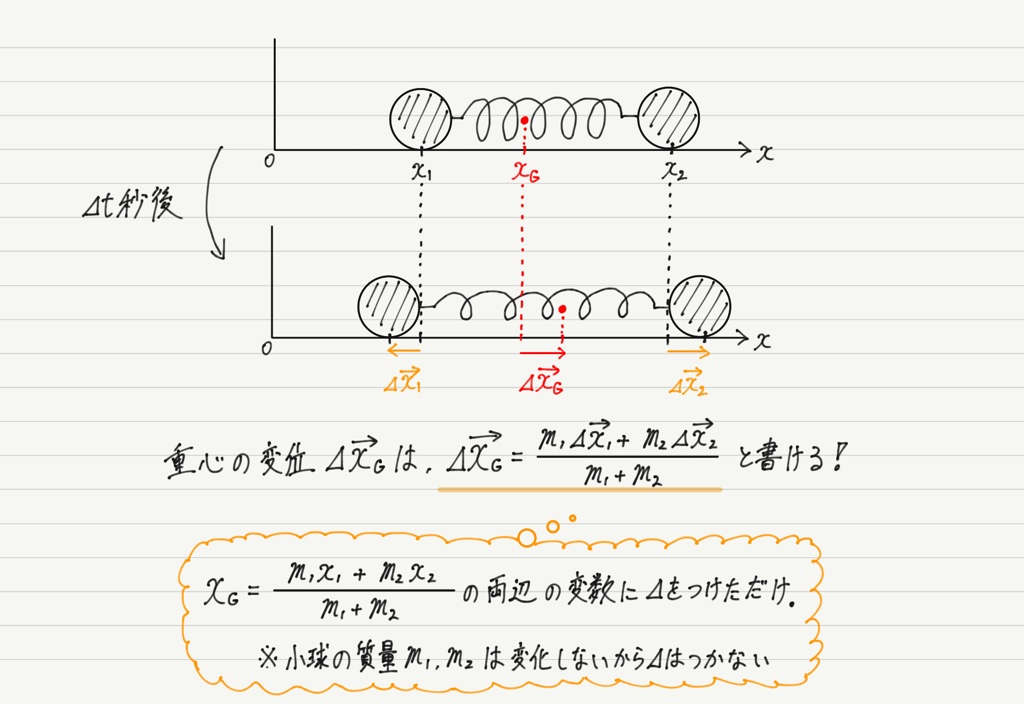 0 x₁ x_G x₂ x
Δt秒後
0 x
Δx⃗₁ Δx⃗_G Δx⃗₂
重心の変位 Δx⃗_G は、Δx⃗_G = (m₁Δx⃗₁ + m₂Δx⃗₂)/(m₁ + m₂) と書ける!
x_G = (m₁x₁ + m₂x₂)/(m₁ + m₂) の両辺の変数にΔをつけただけ。
※小球の質量 m₁, m₂ は変化しないからΔはつかない